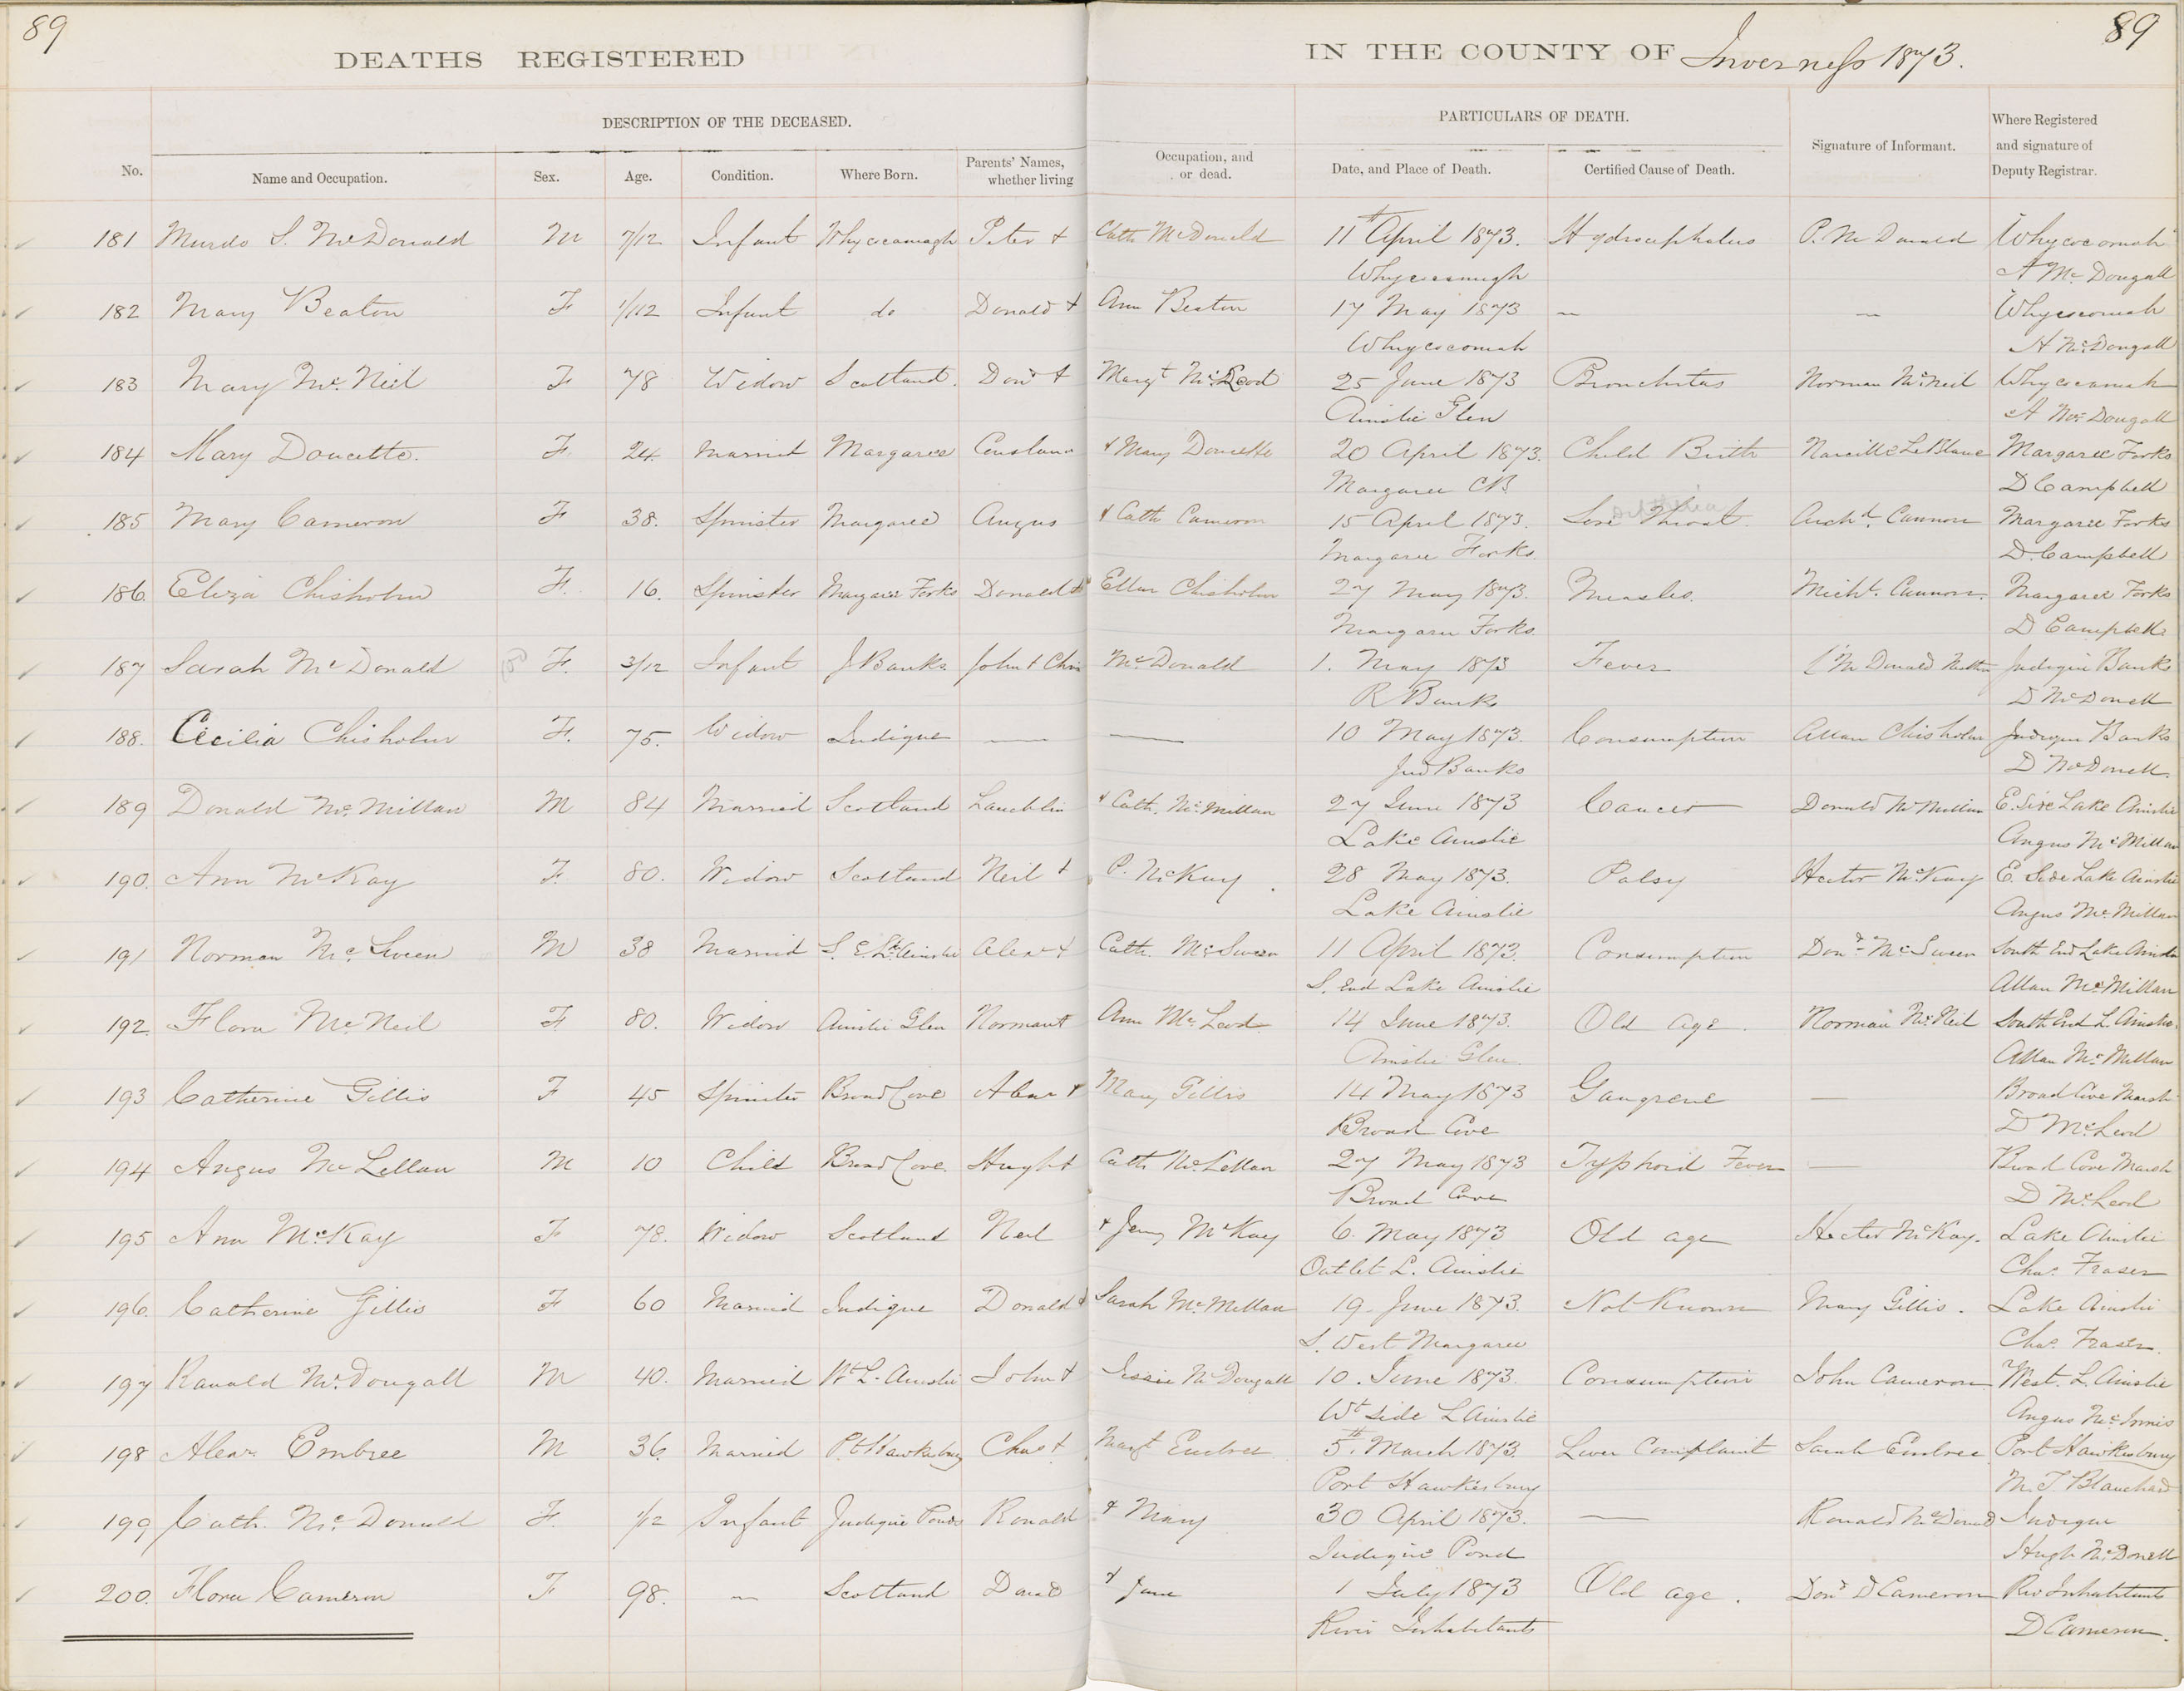 89
89
DEATHS REGISTERED IN THE COUNTY OF Inverness 1873.
DESCRIPTION OF THE DECEASED. PARTICULARS OF DEATH.
No. Name and Occupation. Sex. Age. Condition. Where Born. Parents' Names, whether living Occupation, and or dead. Date, and Place of Death. Certified Cause of Death. Signature of Informant. Where Registered and signature of Deputy Registrar.
181 Murdo S. McDonald M 7/12 Infant Whycocamagh Peter + Cath McDonald 11th April 1873. Hydrocephalus P. McDonald Whycocomah
Whycocomagh A McDougall
182 Mary Beaton F 1/112 Infant do Donald + Ann Beaton 17 May 1873 — — Whycocomah
Whycocomah A McDougall
183 Mary McNeil F 78 Widow Scotland. Dond + Margt McLeod 25 June 1873 Bronchitas Norman McNeil Whycocomah
Ainslie Glen A McDougall
184 Mary Doucette. F. 24. Married Margaree & Mary Doucette 20 April 1873. Child Birth LeBlanc Margaree Forks
Margaree CB D Campbell
185 Mary Cameron F 38. Spinster Margaree Angus & Cath Cameron 15 April 1873. Sore Throat. Archd. Cannon Margaree Forks
Margaree Forks. D. Campbell
186. Eliza Chisholm F. 16. Spinster Margaree Forks Donald & Ellen Chisholm 27 May 1873. Measles. Michl. Cannon. Margaree Forks
Margaree Forks. D Campbell
187 Sarah McDonald F. 3/12 Infant J Banks. John & Chris McDonald 1. May 1873 Fever McDonald Judique Banks
R Banks D McDonell
188. Cecilia Chisholm F. 75. Widow Judique — — 10 May 1873. Consumption Allan Chisholm Judique Banks
Jud Banks D McDonell.
189 Donald McMillan M 84 Married Scotland Lauchlin & Cath. McMillan 27 June 1873 Cancer Donald McMillan E. Side Lake Ainslie
Lake Ainslie Angus McMillan
190. Ann McKay F. 80. Widow Scotland Neil + P. McKay. 28 May 1873. Palsy Hector McKay E. Side Lake Ainslie
Lake Ainslie Angus McMillan
191 Norman McSween M 38 Married S. E. Lk Ainslie Alexr + Cath. McSween 11 April 1873. Consumption Dond McSween South End Lake Ainslie
S. End Lake Ainslie Allan McMillan
192. Flora McNeil F. 80. Widow Ainslie Glen Norman + Ann McLeod 14 June 1873. Old age. Norman McNeil South End L. Ainslie.
Ainslie Glen. Allan McMillan
193 Catherine Gillis F 45 Spinster Broad Cove Alexr + Mary Gillis 14 May 1873 Gangrene — Broad Cove Marsh
Broad Cove D McLeod
194 Angus McLellan M 10 Child Broad Cove. Hugh + Cath McLellan 27 May 1873 Typhoid Fever — Broad Cove Marsh
Broad Cove D McLeod
195 Ann McKay F 78. Widow Scotland Neil & Jenny McKay 6. May 1873 Old age Hector McKay. Lake Ainslie
Outlet L. Ainslie Chas. Fraser
196. Catherine Gillis F 60 Married Judique Donald & Sarah McMillan 19 June 1873. Not Known Mary Gillis. Lake Ainslie
S. West Margaree Chas. Fraser.
197 Ranald McDougall M 40. Married Wt L. Ainslie John + Jessie McDougall 10. June 1873. Consumption John Cameron West. L. Ainslie
Wt side L Ainslie Angus McInnis
198 Alexr Embree M 36. Married Pt Hawkesbury Chas + Margt Embree 5th. March 1873. Liver Complaint Sarah Embree Port Hawkesbury
Port Hawkesbury M. J. Blanchard
199 Cath. McDonald F. 1/12 Infant Judique Pond Ronald & Mary 30 April 1873. — Ronald McDonald Judique
Judique Pond Hugh McDonell
200. Flora Cameron F 98. — Scotland Donald & Jane 1 July 1873 Old age. Dond D Cameron Riv Inhabitants
River Inhabitants D Cameron.